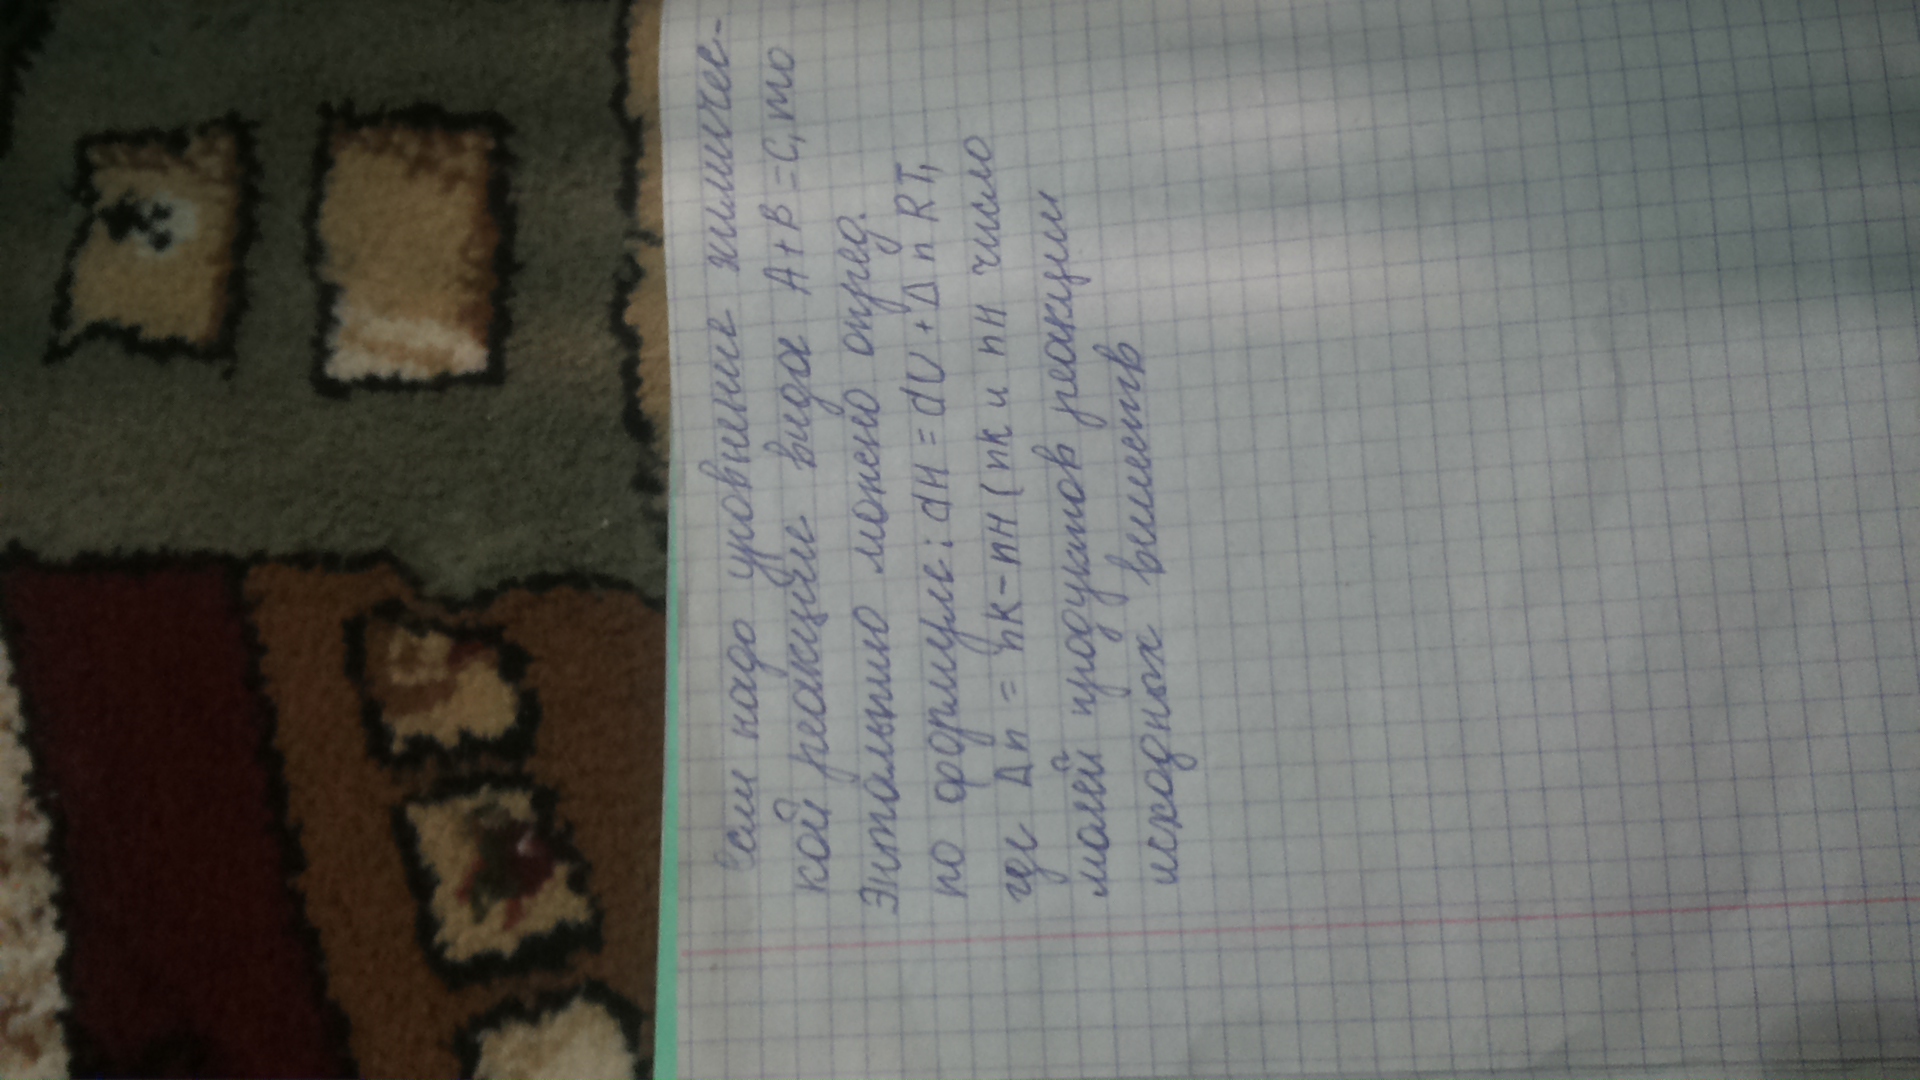 Если надо уровнение химичес-
кой реакцие вида A+B=C, то
Энтальпию можно опред.
по формуле: dH = dU + Δ n RT,
где Δn = nк-nн (nк и nн число
молей продуктов реакции
исходных веществ